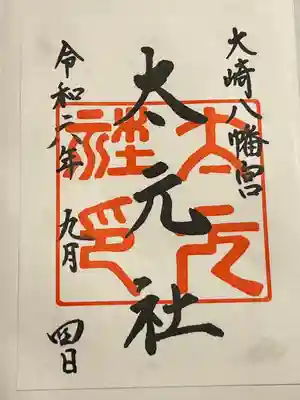 大崎八幡宮
太元社
令和六年 九月 四日
太元社印